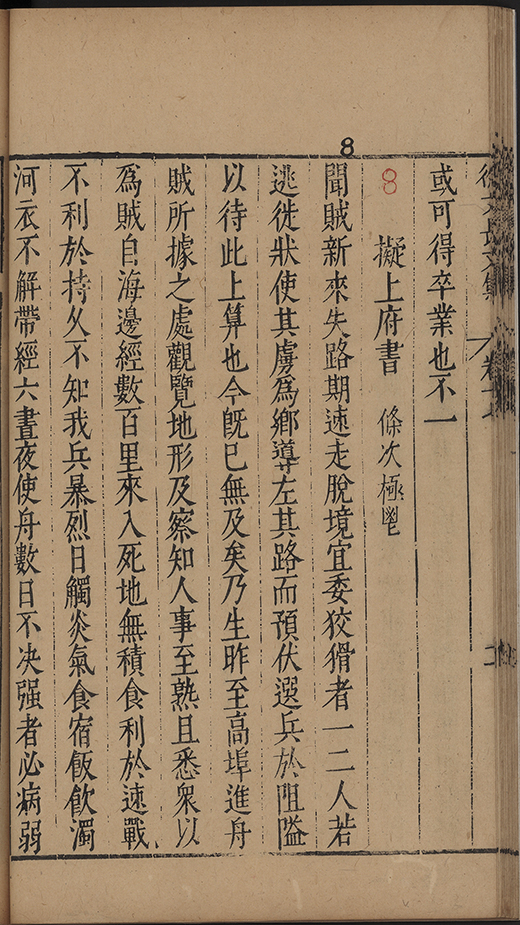 8
徐文長文集 卷十七
或可得卒業也不一
8
擬上府書 條次極鬯
聞賊新來失路期速走脫境宜委狡猾者一二人若
逃徙狀使其虜爲鄉導左其路而預伏選兵於阻隘
以待此上算也今旣已無及矣乃生昨至高埠進舟
賊所據之處觀覽地形及察知人事至熟且悉衆以
爲賊自海邊經數百里來入死地無積食利於速戰
不利於持久不知我兵暴烈日觸炎氣食宿飯飮濁
河衣不解帶經六晝夜使舟數日不决强者必病弱